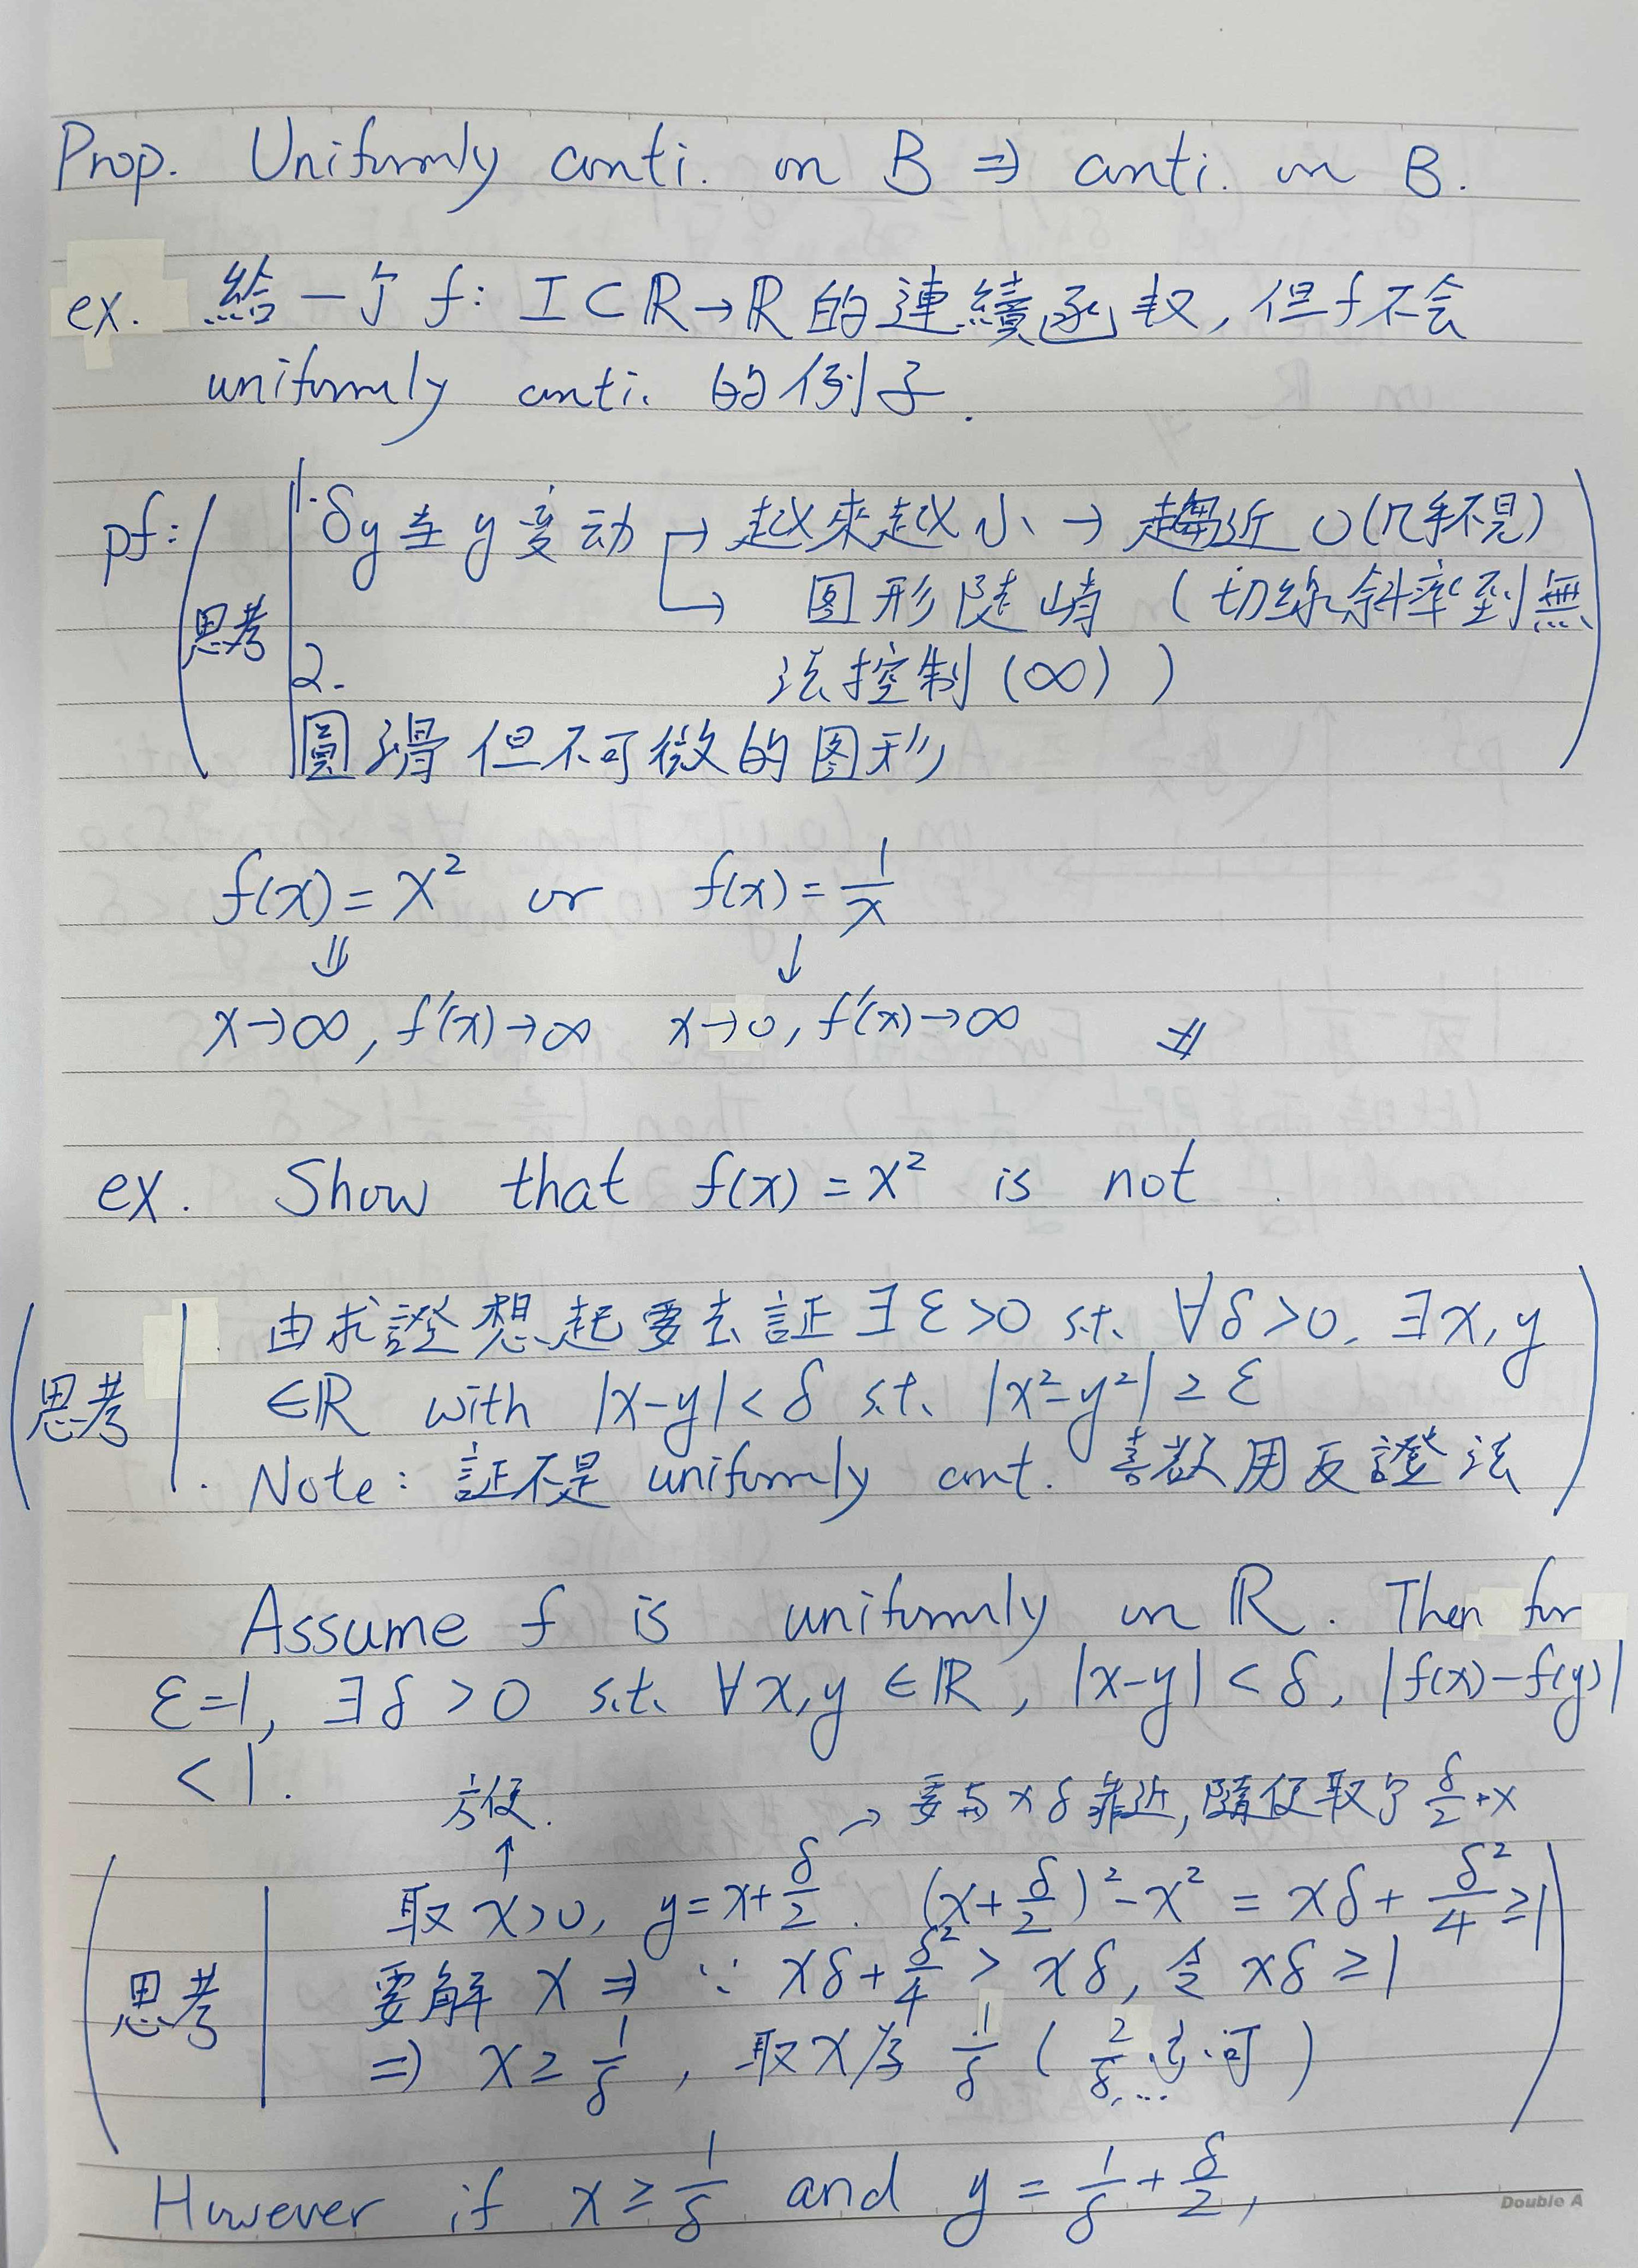 Prop. Uniformly conti. on B ⇒ conti. on B.
ex. 給一个 f: I⊂ℝ→ℝ 的連續函数, 但f不会
uniformly conti. 的例子.
pf: 思考 1. δy 至 y 变动 → 越來越小 → 趨近 0 (几乎不見)
→ 图形陡峭 (切線斜率到無
2. 法控制 (∞) )
圓滑但不可微的图形
f(x) = x² or f(x) = 1/x
⇓ ↓
x→∞, f'(x)→∞ x→0, f'(x)→∞ #
ex. Show that f(x) = x² is not .
思考 . 由求證想起要去証 ∃ε>0 s.t. ∀δ>0, ∃x,y
∈ℝ with |x-y|<δ s.t. |x²-y²|≥ε
. Note: 証不是 uniformly cont. 喜歡用反證法
Assume f is uniformly on ℝ. Then for
ε=1, ∃δ>0 s.t. ∀x,y∈ℝ, |x-y|<δ, |f(x)-f(y)|
<1.
方便. → 要与x δ靠近, 隨便取个 δ/2+x
↑
取 x>0, y=x+δ/2. (x+δ/2)²-x² = xδ+δ²/4 ≥1
思考 要解 x ⇒ ∵ xδ+δ²/4 > xδ, 令 xδ≥1
⇒ x≥1/δ, 取x为 1/δ (2/δ,... 也可)
However if x≥1/δ and y=1/δ+δ/2,
Double A